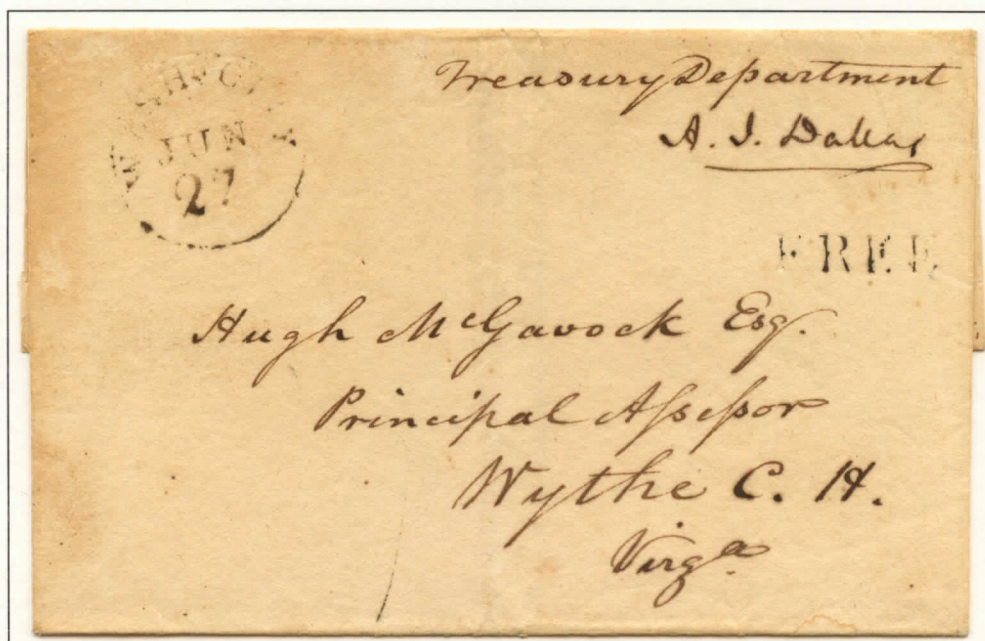 WASH. CITY
JUN
27
Treasury Department
A. J. Dallas
FREE
Hugh McGavock Esq.
Principal Aſseſsor
Wythe C. H.
Virgª